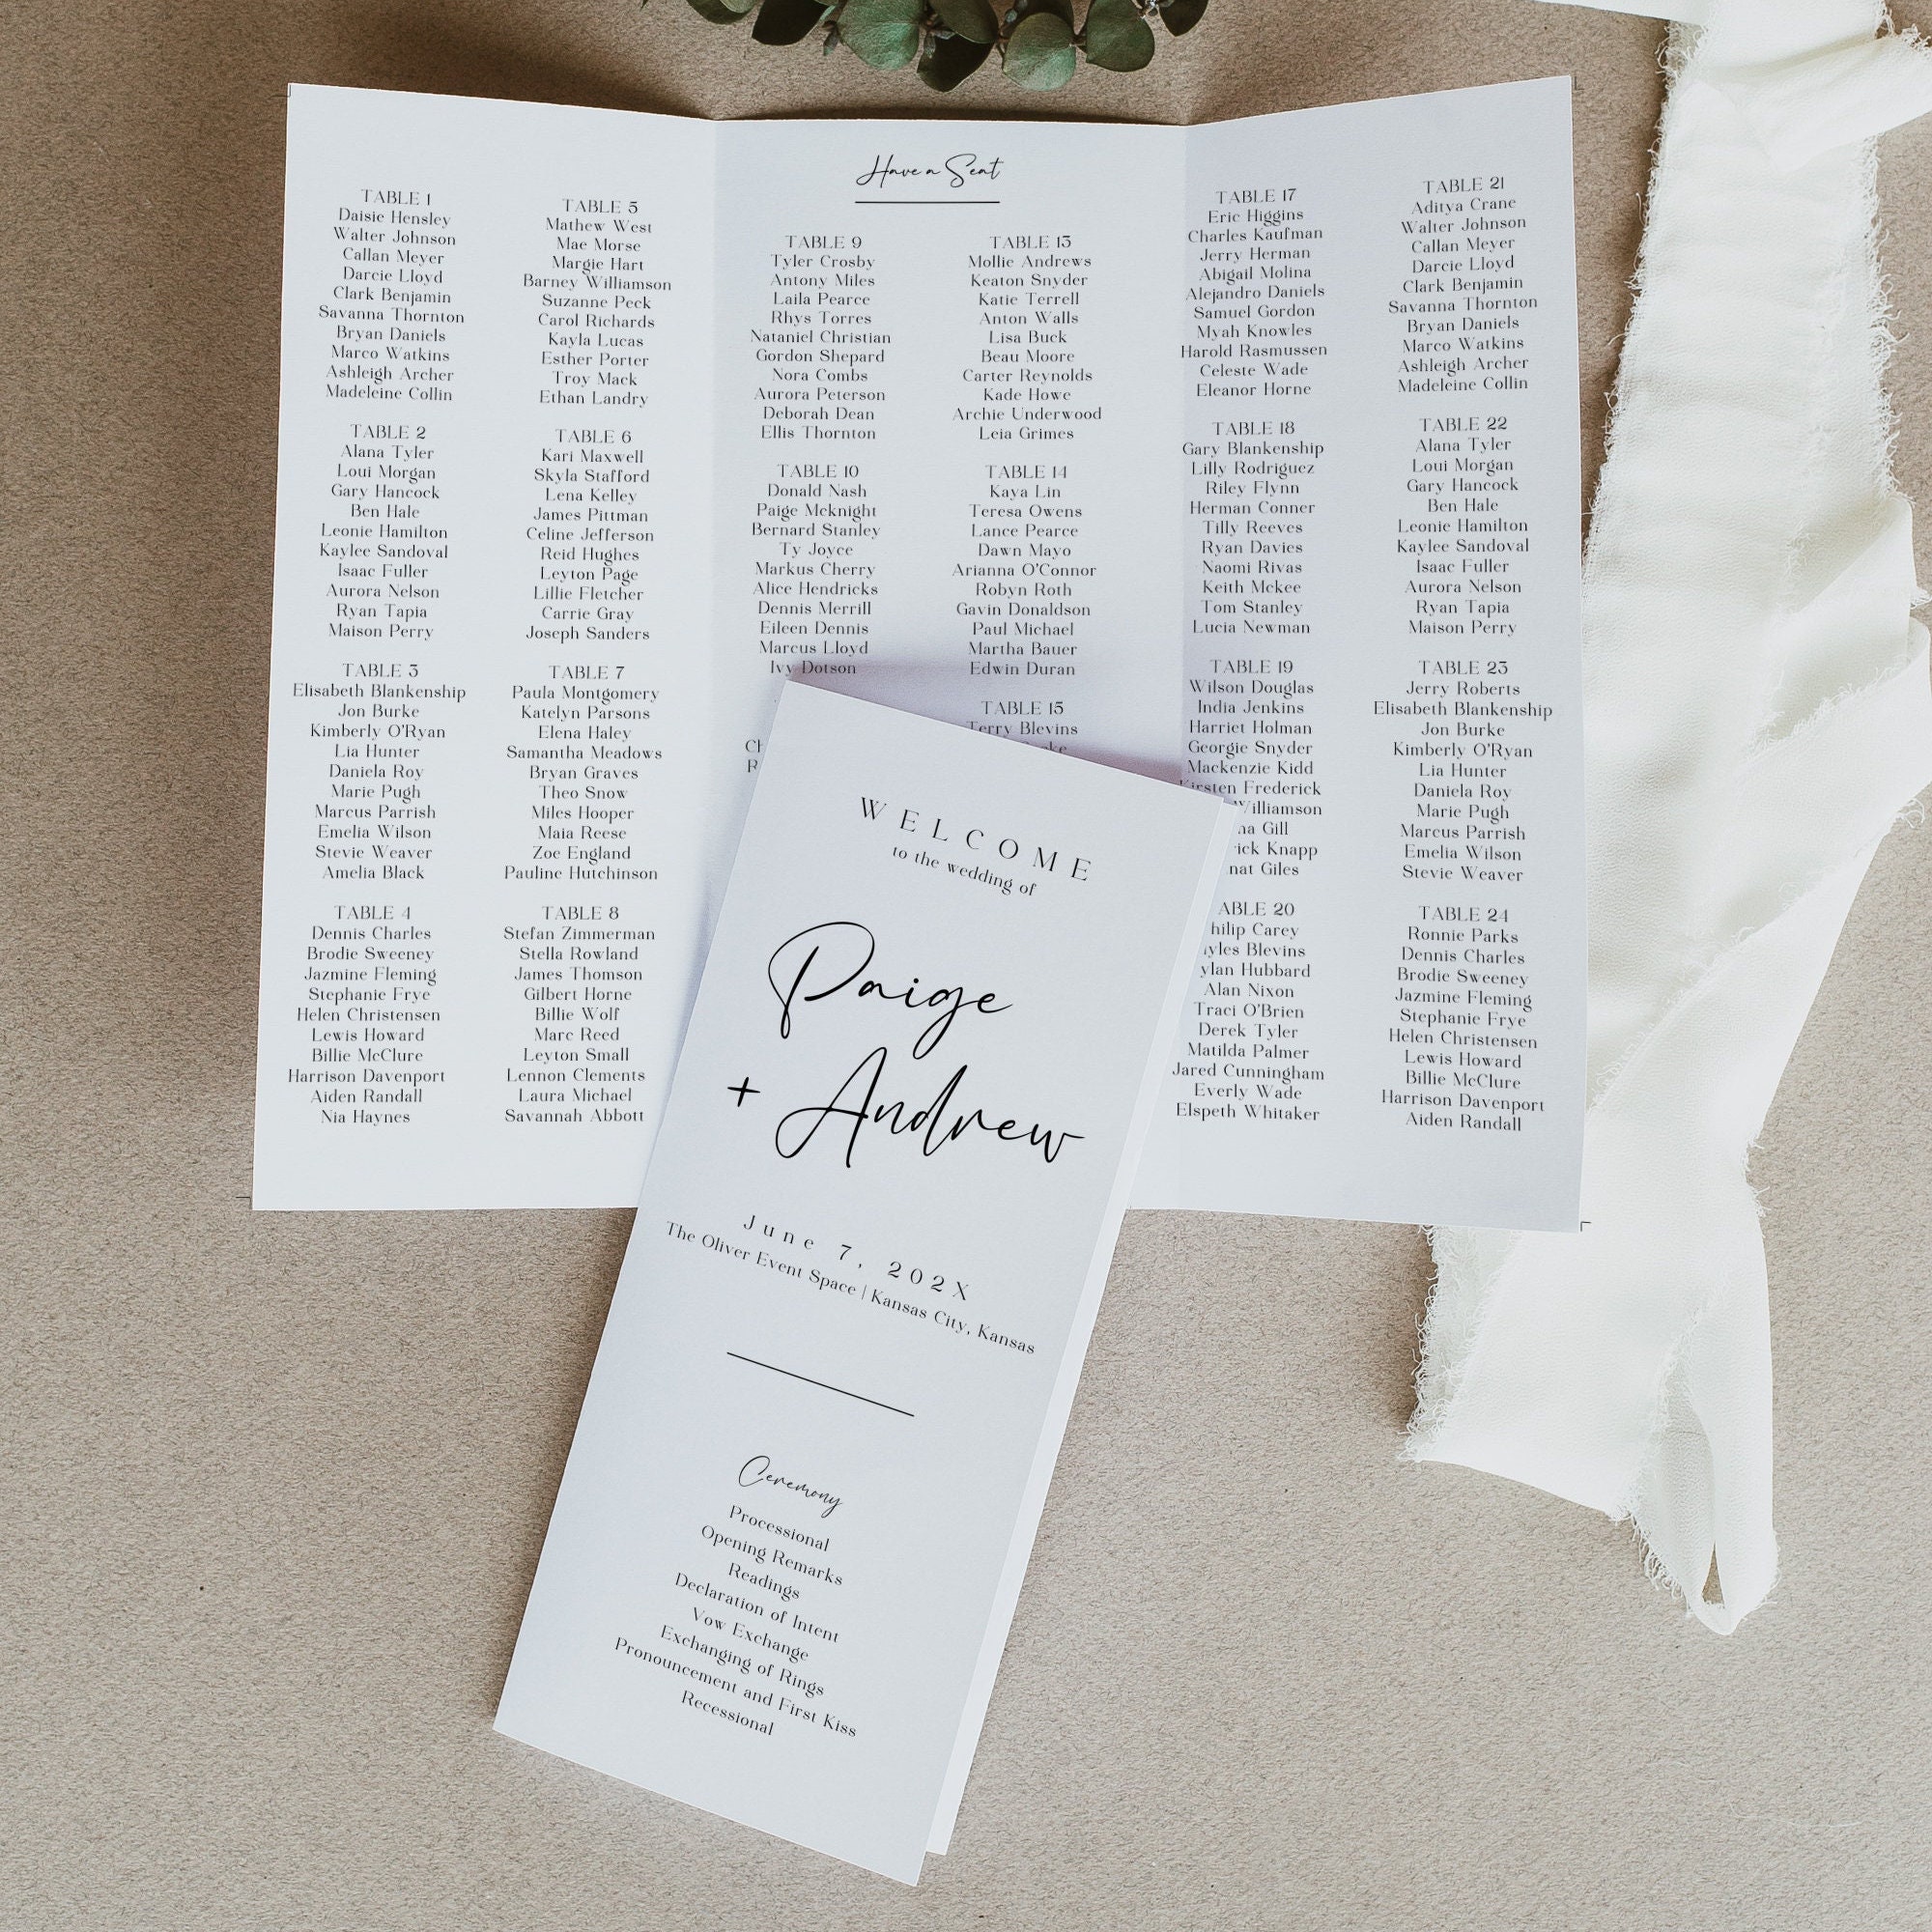 Have a Seat
TABLE 1
Daisie Hensley
Walter Johnson
Callan Meyer
Darcie Lloyd
Clark Benjamin
Savanna Thornton
Bryan Daniels
Marco Watkins
Ashleigh Archer
Madeleine Collin
TABLE 2
Alana Tyler
Loui Morgan
Gary Hancock
Ben Hale
Leonie Hamilton
Kaylee Sandoval
Isaac Fuller
Aurora Nelson
Ryan Tapia
Maison Perry
TABLE 3
Elisabeth Blankenship
Jon Burke
Kimberly O'Ryan
Lia Hunter
Daniela Roy
Marie Pugh
Marcus Parrish
Emelia Wilson
Stevie Weaver
Amelia Black
TABLE 4
Dennis Charles
Brodie Sweeney
Jazmine Fleming
Stephanie Frye
Helen Christensen
Lewis Howard
Billie McClure
Harrison Davenport
Aiden Randall
Nia Haynes
TABLE 5
Mathew West
Mae Morse
Margie Hart
Barney Williamson
Suzanne Peck
Carol Richards
Kayla Lucas
Esther Porter
Troy Mack
Ethan Landry
TABLE 6
Kari Maxwell
Skyla Stafford
Lena Kelley
James Pittman
Celine Jefferson
Reid Hughes
Leyton Page
Lillie Fletcher
Carrie Gray
Joseph Sanders
TABLE 7
Paula Montgomery
Katelyn Parsons
Elena Haley
Samantha Meadows
Bryan Graves
Theo Snow
Miles Hooper
Maia Reese
Zoe England
Pauline Hutchinson
TABLE 8
Stefan Zimmerman
Stella Rowland
James Thomson
Gilbert Horne
Billie Wolf
Marc Reed
Leyton Small
Lennon Clements
Laura Michael
Savannah Abbott
TABLE 9
Tyler Crosby
Antony Miles
Laila Pearce
Rhys Torres
Nataniel Christian
Gordon Shepard
Nora Combs
Aurora Peterson
Deborah Dean
Ellis Thornton
TABLE 10
Donald Nash
Paige Mcknight
Bernard Stanley
Ty Joyce
Markus Cherry
Alice Hendricks
Dennis Merrill
Eileen Dennis
Marcus Lloyd
Ivy Dotson
TABLE 13
Mollie Andrews
Keaton Snyder
Katie Terrell
Anton Walls
Lisa Buck
Beau Moore
Carter Reynolds
Kade Howe
Archie Underwood
Leia Grimes
TABLE 14
Kaya Lin
Teresa Owens
Lance Pearce
Dawn Mayo
Arianna O'Connor
Robyn Roth
Gavin Donaldson
Paul Michael
Martha Bauer
Edwin Duran
TABLE 15
Terry Blevins
TABLE 17
Eric Higgins
Charles Kaufman
Jerry Herman
Abigail Molina
Alejandro Daniels
Samuel Gordon
Myah Knowles
Harold Rasmussen
Celeste Wade
Eleanor Horne
TABLE 18
Gary Blankenship
Lilly Rodriguez
Riley Flynn
Herman Conner
Tilly Reeves
Ryan Davies
Naomi Rivas
Keith Mckee
Tom Stanley
Lucia Newman
TABLE 19
Wilson Douglas
India Jenkins
Harriet Holman
Georgie Snyder
Mackenzie Kidd
Frederick
Williamson
Gill
Knapp
Giles
20
Carey
Blevins
Hubbard
Alan Nixon
Traci O'Brien
Derek Tyler
Matilda Palmer
Jared Cunningham
Everly Wade
Elspeth Whitaker
TABLE 21
Aditya Crane
Walter Johnson
Callan Meyer
Darcie Lloyd
Clark Benjamin
Savanna Thornton
Bryan Daniels
Marco Watkins
Ashleigh Archer
Madeleine Collin
TABLE 22
Alana Tyler
Loui Morgan
Gary Hancock
Ben Hale
Leonie Hamilton
Kaylee Sandoval
Isaac Fuller
Aurora Nelson
Ryan Tapia
Maison Perry
TABLE 23
Jerry Roberts
Elisabeth Blankenship
Jon Burke
Kimberly O'Ryan
Lia Hunter
Daniela Roy
Marie Pugh
Marcus Parrish
Emelia Wilson
Stevie Weaver
TABLE 24
Ronnie Parks
Dennis Charles
Brodie Sweeney
Jazmine Fleming
Stephanie Frye
Helen Christensen
Lewis Howard
Billie McClure
Harrison Davenport
Aiden Randall
WELCOME
to the wedding of
Paige
+ Andrew
June 7, 202X
The Oliver Event Space | Kansas City, Kansas
Ceremony
Processional
Opening Remarks
Readings
Declaration of Intent
Vow Exchange
Exchanging of Rings
Pronouncement and First Kiss
Recessional